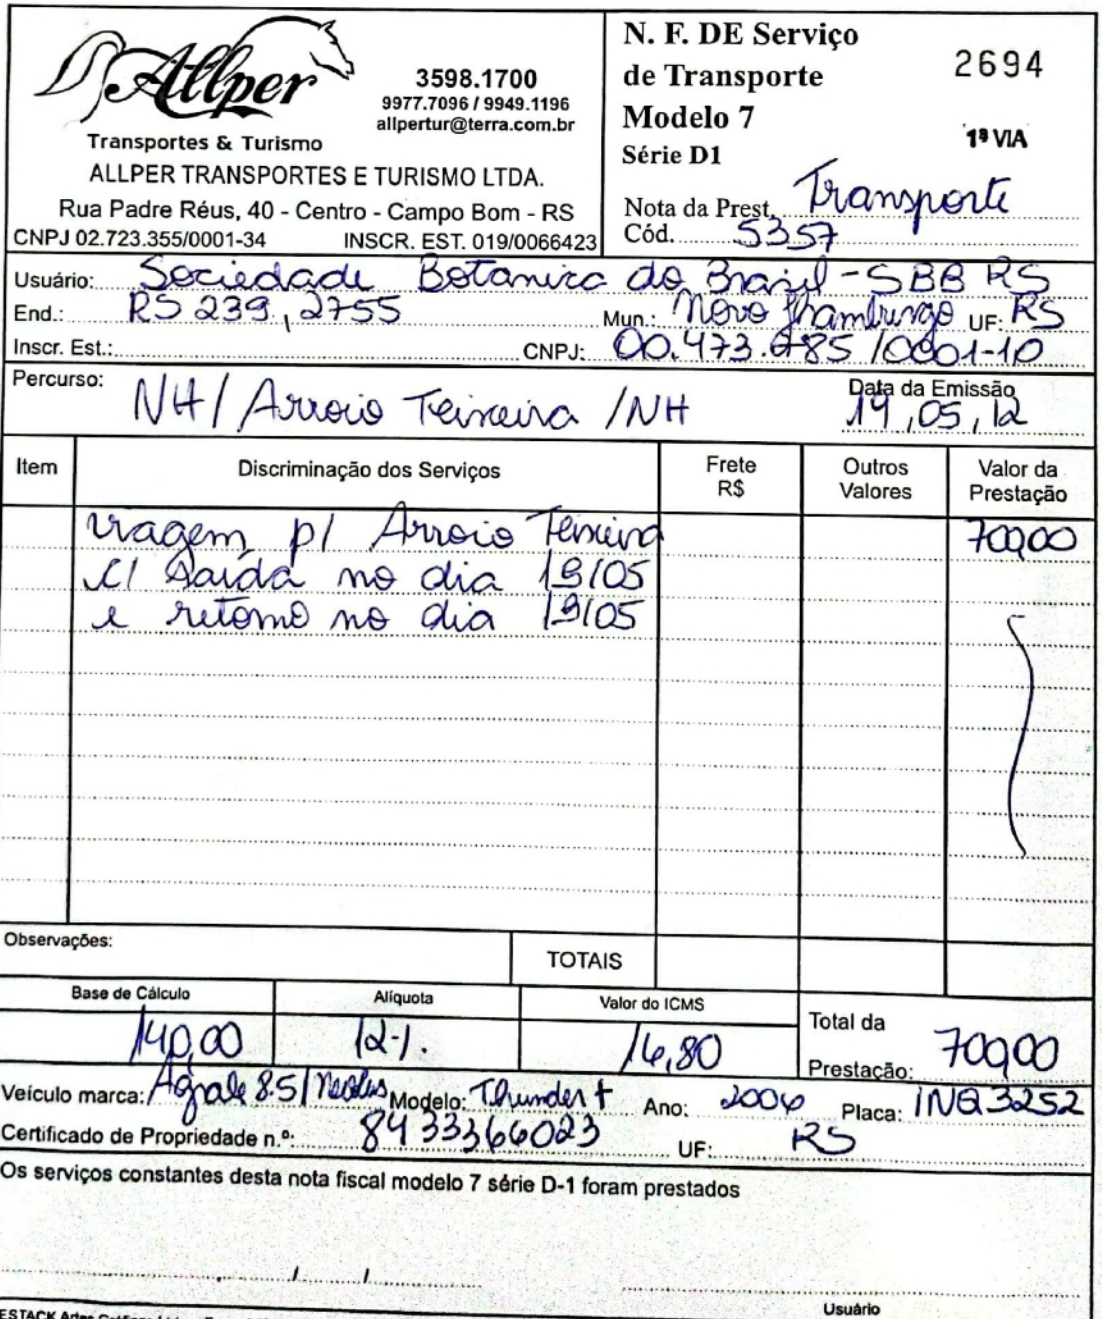 Allper
Transportes & Turismo
3598.1700
9977.7096 / 9949.1196
allpertur@terra.com.br
ALLPER TRANSPORTES E TURISMO LTDA.
Rua Padre Réus, 40 - Centro - Campo Bom - RS
CNPJ 02.723.355/0001-34 INSCR. EST. 019/0066423
N. F. DE Serviço
de Transporte
Modelo 7
Série D1
2694
1ª VIA
Nota da Prest. Transporte
Cód. 5357
Usuário: Sociedade Botanica do Brasil - SBB RS
End.: RS 239, 2755 Mun.: Novo Hamburgo UF: RS
Inscr. Est.: CNPJ: 00.473.085/0001-10
Percurso: NH / Arroio Teixeira / NH
Data da Emissão
19,05,12
Item Discriminação dos Serviços Frete R$ Outros Valores Valor da Prestação
viagem p/ Arroio Teixeira 700,00
c/ saída no dia 19/05
e retorno no dia 19/05
Observações: TOTAIS
Base de Cálculo Alíquota Valor do ICMS
140,00 12%. 16,80
Total da Prestação: 700,00
Veículo marca: Agrale 8.5/ Neobus Modelo: Thunder + Ano: 2006 Placa: INQ 3252
Certificado de Propriedade n.º: 8433366023 UF: RS
Os serviços constantes desta nota fiscal modelo 7 série D-1 foram prestados
/ /
Usuário